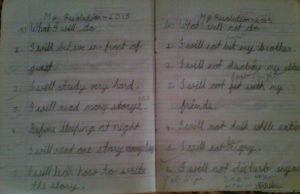 My Resolution - 2013
What I will do.
1. I will behave in front of
guest.
2. I will study very hard.
3. I will read more storys.
4. Before sleeping at night
I will read one story
5. I will learn how to write
the story.
My Resolution - 2013
What I will not do.
1. I will not hit my brother.
2. I will not disturb my
3. I will not fight with my
friends.
4. I will not talk while
5. I will not cry.
6. I will not disturb